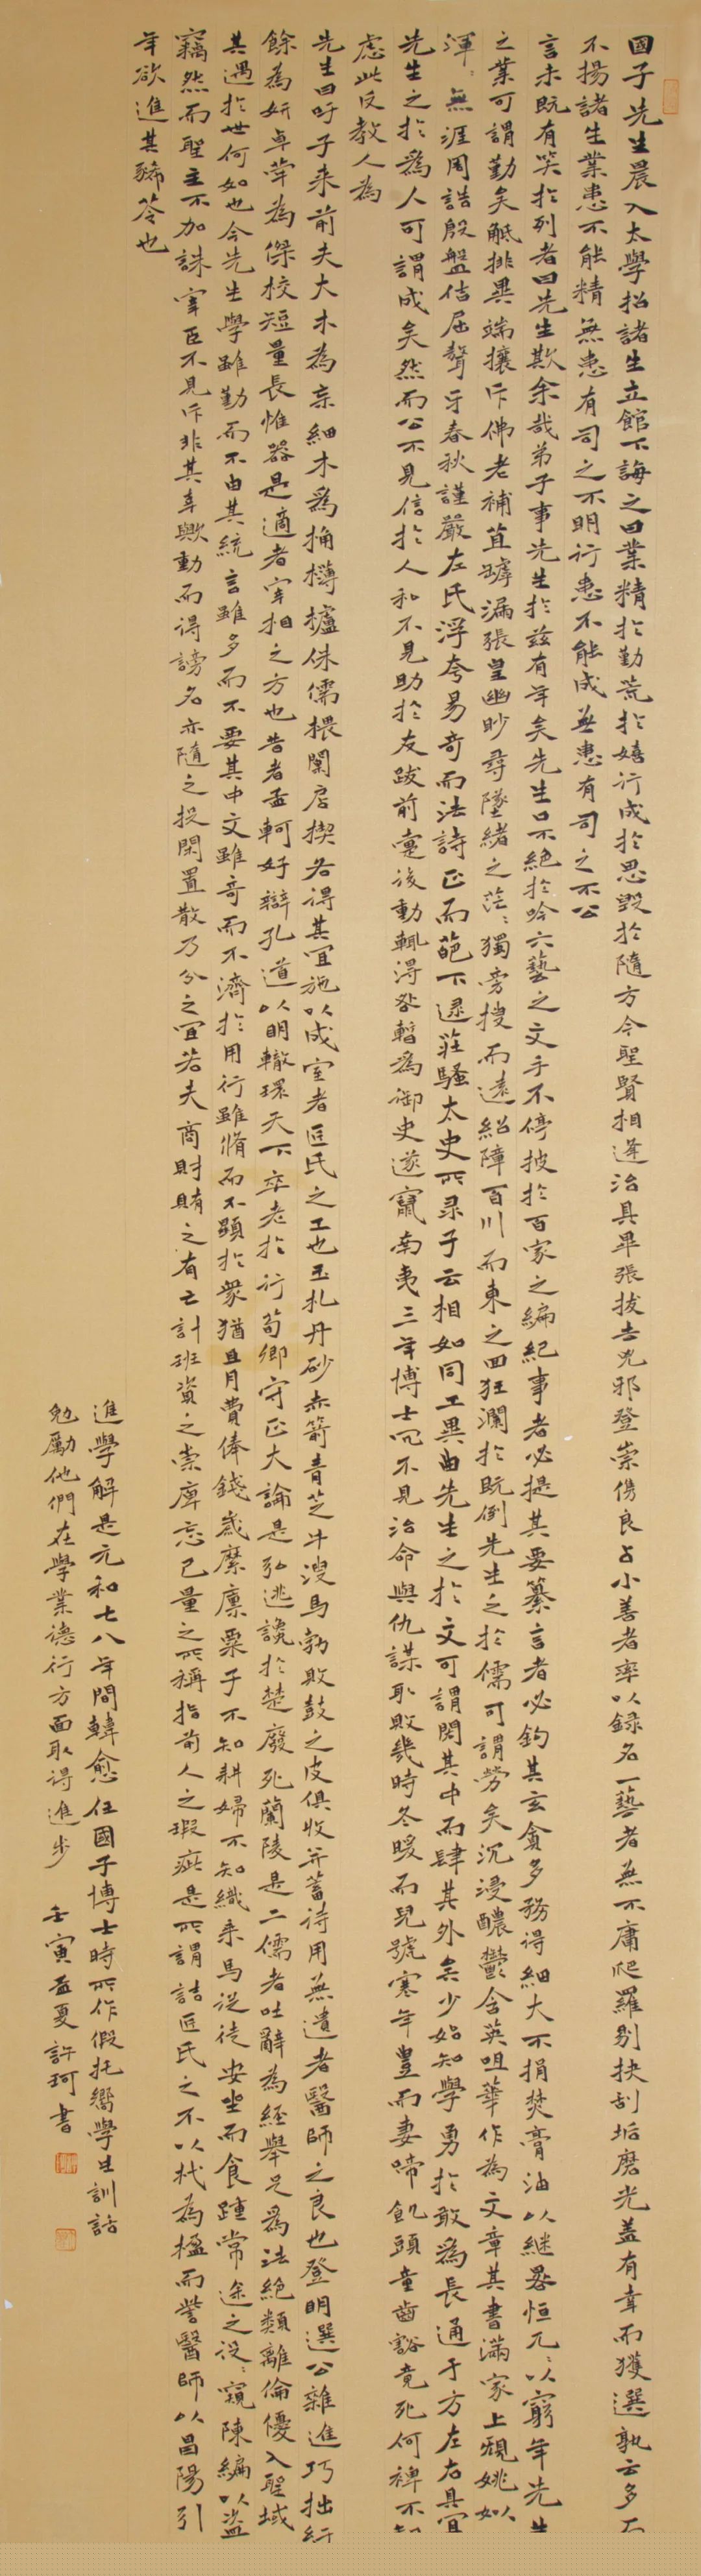 國子先生晨入太學招諸生立館下誨之曰業精於勤荒於嬉行成於思毀於隨方今聖賢相逢治具畢張拔去兇邪登崇儁良占小善者率以録名一藝者無不庸爬羅剔抉刮垢磨光蓋有幸而獲選孰云多而
不揚諸生業患不能精無患有司之不明行患不能成無患有司之不公
言未既有笑於列者曰先生欺余哉弟子事先生於茲有年矣先生口不絶於吟六藝之文手不停披於百家之編紀事者必提其要纂言者必鉤其玄貪多務得細大不捐焚膏油以繼晷恒兀〻以窮年先生
之業可謂勤矣觝排異端攘斥佛老補苴罅漏張皇幽眇尋墜緒之茫〻獨旁搜而遠紹障百川而東之回狂瀾於既倒先生之於儒可謂勞矣沉浸醲鬱含英咀華作為文章其書滿家上規姚姒
渾〻無涯周誥殷盤佶屈聱牙春秋謹嚴左氏浮夸易奇而法詩正而葩下逮莊騷太史所录子云相如同工異曲先生之於文可謂閎其中而肆其外矣少始知學勇於敢為長通于方左右具宜
先生之於爲人可謂成矣然而公不見信於人私不見助於友跋前疐後動輒得咎暫為御史遂竄南夷三年博士冗不見治命與仇謀取敗幾時冬暖而兒號寒年豊而妻啼飢頭童齒豁竟死何裨不知
慮此反教人為
先生曰吁子来前夫大木為杗細木爲桷欂櫨侏儒椳闑扂楔各得其宜施以成室者匠氏之工也玉札丹砂赤箭青芝牛溲馬勃敗鼓之皮俱收并蓄待用無遺者醫師之良也登明選公雜進巧拙紆
餘為妍卓犖為傑校短量長惟器是適者宰相之方也昔者孟軻好辯孔道以明轍環天下卒老於行荀卿守正大論是弘逃讒於楚廢死蘭陵是二儒者吐辭為經舉足爲法絶類離倫優入聖域
其遇於世何如也今先生學雖勤而不由其統言雖多而不要其中文雖奇而不濟於用行雖脩而不顯於衆猶且月費俸錢歲縻廪粟子不知耕婦不知織乘馬從徒安坐而食踵常途之役〻窺陳編以盜
竊然而聖主不加誅宰臣不見斥非其幸歟動而得謗名亦隨之投閑置散乃分之宜若夫商財賄之有亡計班資之崇庳忘己量之所稱指前人之瑕疵是所謂詰匠氏之不以杙為楹而訾醫師以昌陽引
年欲進其豨苓也
進學解是元和七八年間韓愈任國子博士時所作假托嚮學生訓話
勉勵他們在學業德行方面取得進步 壬寅孟夏許珂書